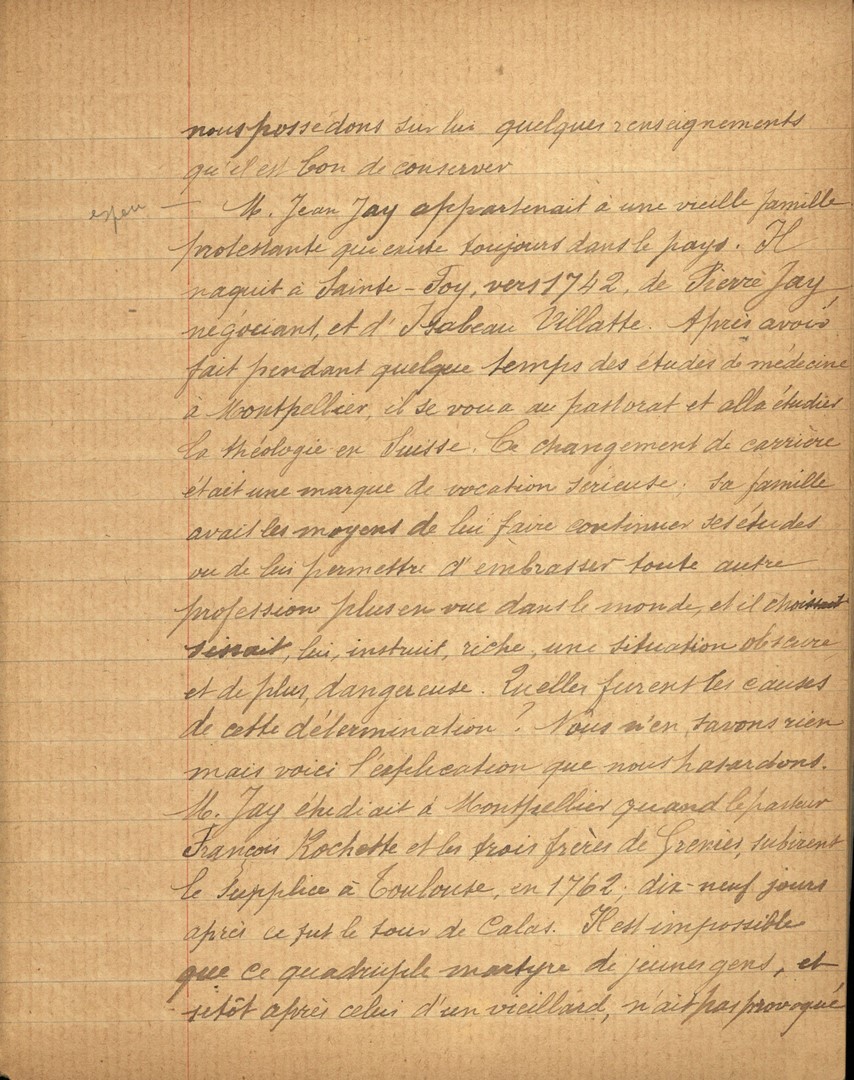 nous possédons sur lui quelques renseignements
qu'il est bon de conserver
M. Jean Jay appartenait à une vieille famille
protestante qui existe toujours dans le pays. Il
naquit à Sainte-Foy, vers 1742, de Pierre Jay,
négociant, et d'Isabeau Villatte. Après avoir
fait pendant quelque temps des études de médecine
à Montpellier, il se voua au pastorat et alla étudier
la théologie en Suisse. Ce changement de carrière
était une marque de vocation sérieuse; sa famille
avait les moyens de lui faire continuer ses études
ou de lui permettre d'embrasser toute autre
profession plus en vue dans le monde, et il choi
sissait, lui, instruit, riche, une situation obscure
et de plus, dangereuse. Quelles furent les causes
de cette détermination? Nous n'en savons rien
mais voici l'explication que nous hasardons.
M. Jay étudiait à Montpellier quand le pasteur
François Rochette et les trois frères de Grenier, subirent
le supplice à Toulouse, en 1762; dix-neuf jours
après ce fut le tour de Calas. Il est impossible
que ce quadruple martyre de jeunes gens, et
sitôt après celui d'un vieillard, n'ait pas provoqué